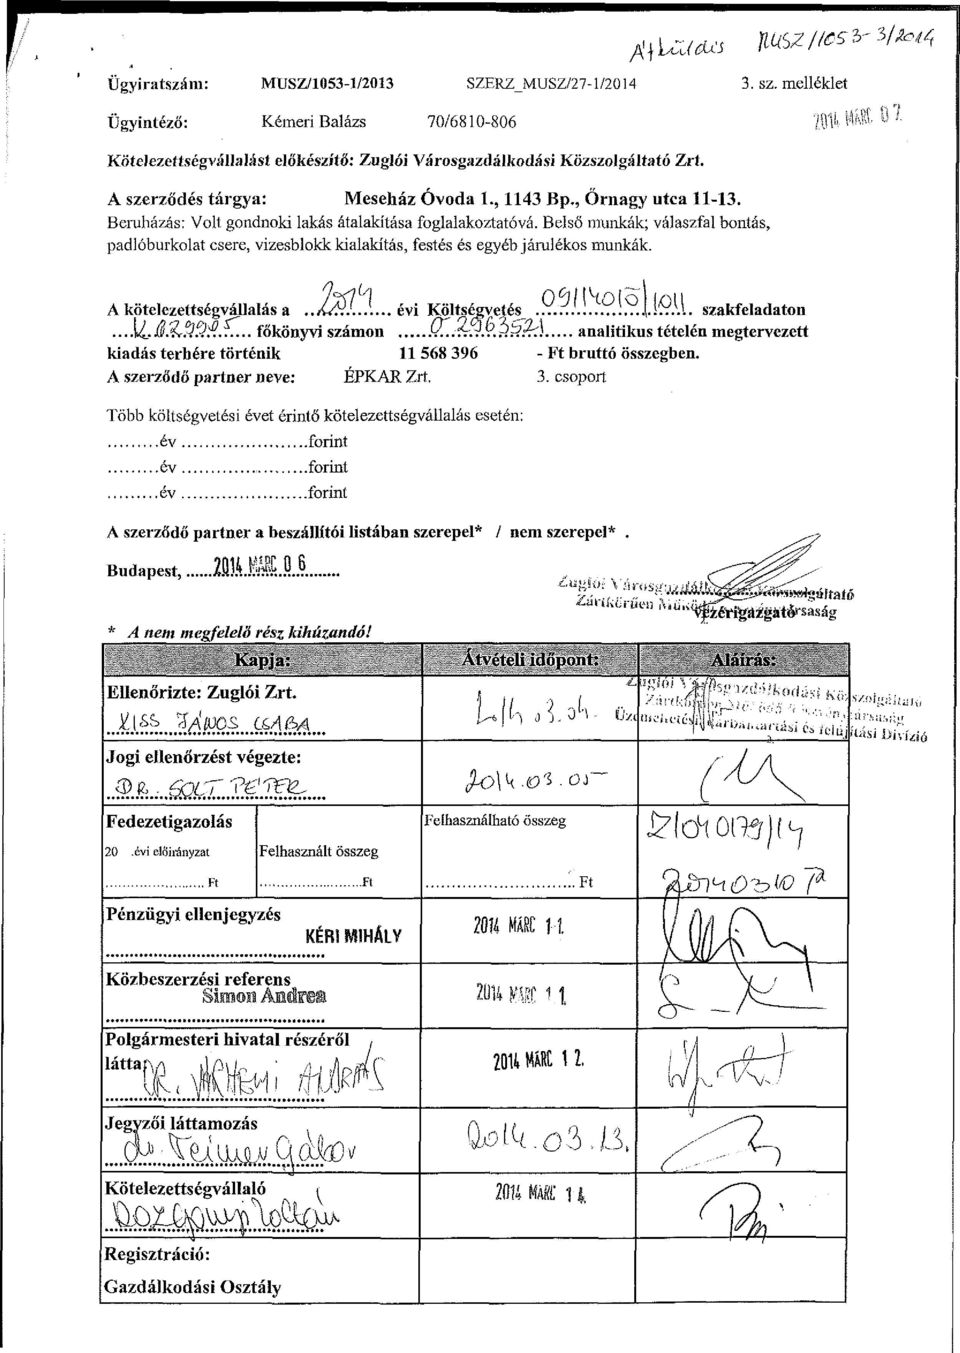 Átküldés MUSZ/1053-3/2014
Ügyiratszám: MUSZ/1053-1/2013 SZERZ_MUSZ/27-1/2014 3. sz. melléklet
Ügyintéző: Kémeri Balázs 70/6810-806 2014 MÁRC. 07.
Kötelezettségvállalást előkészítő: Zuglói Városgazdálkodási Közszolgáltató Zrt.
A szerződés tárgya: Meseház Óvoda 1., 1143 Bp., Őrnagy utca 11-13.
Beruházás: Volt gondnoki lakás átalakítása foglalakoztatóvá. Belső munkák; válaszfal bontás,
padlóburkolat csere, vizesblokk kialakítás, festés és egyéb járulékos munkák.
A kötelezettségvállalás a ..2014.. évi Költségvetés szakfeladaton
főkönyvi számon analitikus tételén megtervezett
kiadás terhére történik 11 568 396 - Ft bruttó összegben.
A szerződő partner neve: ÉPKAR Zrt. 3. csoport
Több költségvetési évet érintő kötelezettségvállalás esetén:
.........év......................forint
.........év......................forint
.........év......................forint
A szerződő partner a beszállítói listában szerepel* / nem szerepel* .
Budapest, ......2014 MÁRC 06.......
Zuglói
Zártkörűen
vezérigazgató
* A nem megfelelő rész kihúzandó!
Kapja: Átvételi időpont: Aláírás:
Ellenőrizte: Zuglói Zrt.
KISS JÁNOS CSABA
Jogi ellenőrzést végezte:
DR. SOLT PÉTER 2014.03.05
Fedezetigazolás Felhasználható összeg
20 .évi előirányzat Felhasznált összeg
........................ Ft ........................Ft ............................ Ft
20140310
Pénzügyi ellenjegyzés
KÉRI MIHÁLY 2014 MÁRC 11.
Közbeszerzési referens
Simon Andrea 2014 MÁRC 11.
Polgármesteri hivatal részéről
látta: DR. ANDRÁS 2014 MÁRC 12.
Jegyzői láttamozás
dr. Teimer Gábor 2014.03.13.
Kötelezettségvállaló 2014 MÁRC 14.
Rozgonyi Zoltán
Regisztráció:
Gazdálkodási Osztály